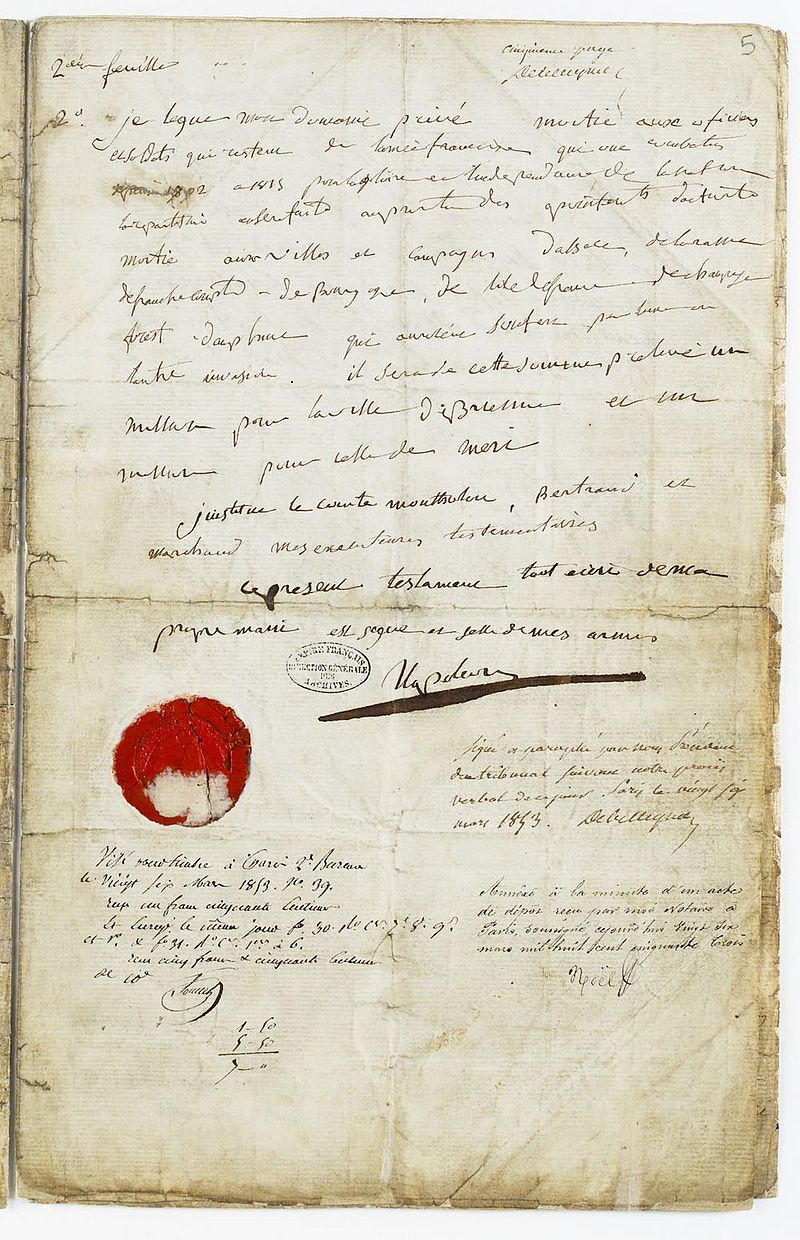 5
cinquieme page
Debelleyme
2eme feuille
2°. je legue mon domaine privé moitié aux officiers
et soldats qui restent de l'armée francaise qui ont combatus
depuis 1892 a 1815 pour la gloire et l'independance de la nation
la repartition en sera faite au prorata des apointements d'activité
moitié aux villes et campagnes d'alsace, de loraine
de franche compté de Bourgogne, de l'ile de france de champagne
forest dauphine qui auraient soufert par l'une ou
l'autre invasion. il sera de cette somme prelevé un
million pour la ville de Brienne et un
million pour celle de meri
j'institue le comte montholon, Bertrand et
marchand mes executeurs testamentaires
ce present testament tout ecrit de ma
propre main est signé et scellé de mes armes
Napoleon
EMPIRE FRANÇAIS
DIRECTION GÉNÉRALE
DES
ARCHIVES.
Signé et paraphé par nous Président
du tribunal suivant notre procès
verbal de ce jour. Paris le vingt six
mars 1853. Debelleyme
Visé pour timbre à Paris 2e Bureau
le Vingt six Mars 1853. No. 39.
reçu un franc cinquante centimes
et Enregé le même jour fo 30. Ro Cn. 7. 8. 9.
et Vo. & fo 31. Ro Cn. 1er à 6.
reçu cinq francs & cinquante centimes
de 10e
1-50
5-50
7-"
Annexé à la minute d'un acte
de dépôt reçu par moi Notaire à
Paris, soussigné, cejourd'hui vingt six
mars mil huit cent cinquante trois
Noël